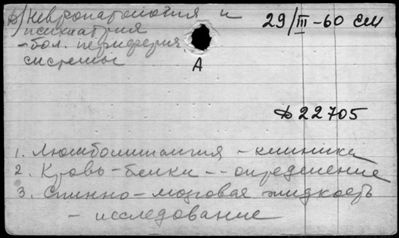 в) Невропатология и
психиатрия
- бол. периферич.
системы
29/III-60 см
А
Д 22705
1. Люмбоишиалгия - клиника
2. Кровь - белки -- определение
3. Спинно-мозговая жидкость
- исследование